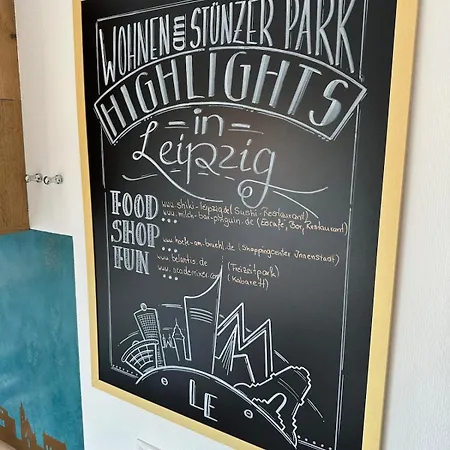 WOHNEN am STÜNZER PARK
HIGHLIGHTS
in
Leipzig
FOOD
www.shiki-leipzig.de (Sushi-Restaurant)
www.milch-bar-pinguin.de (Eiscafé, Bar, Restaurant)
...
SHOP
www.hoefe-am-bruehl.de (Shoppingcenter Innenstadt)
...
FUN
www.belantis.de (Freizeitpark)
www.academixer.com (Kabarett)
...
LE